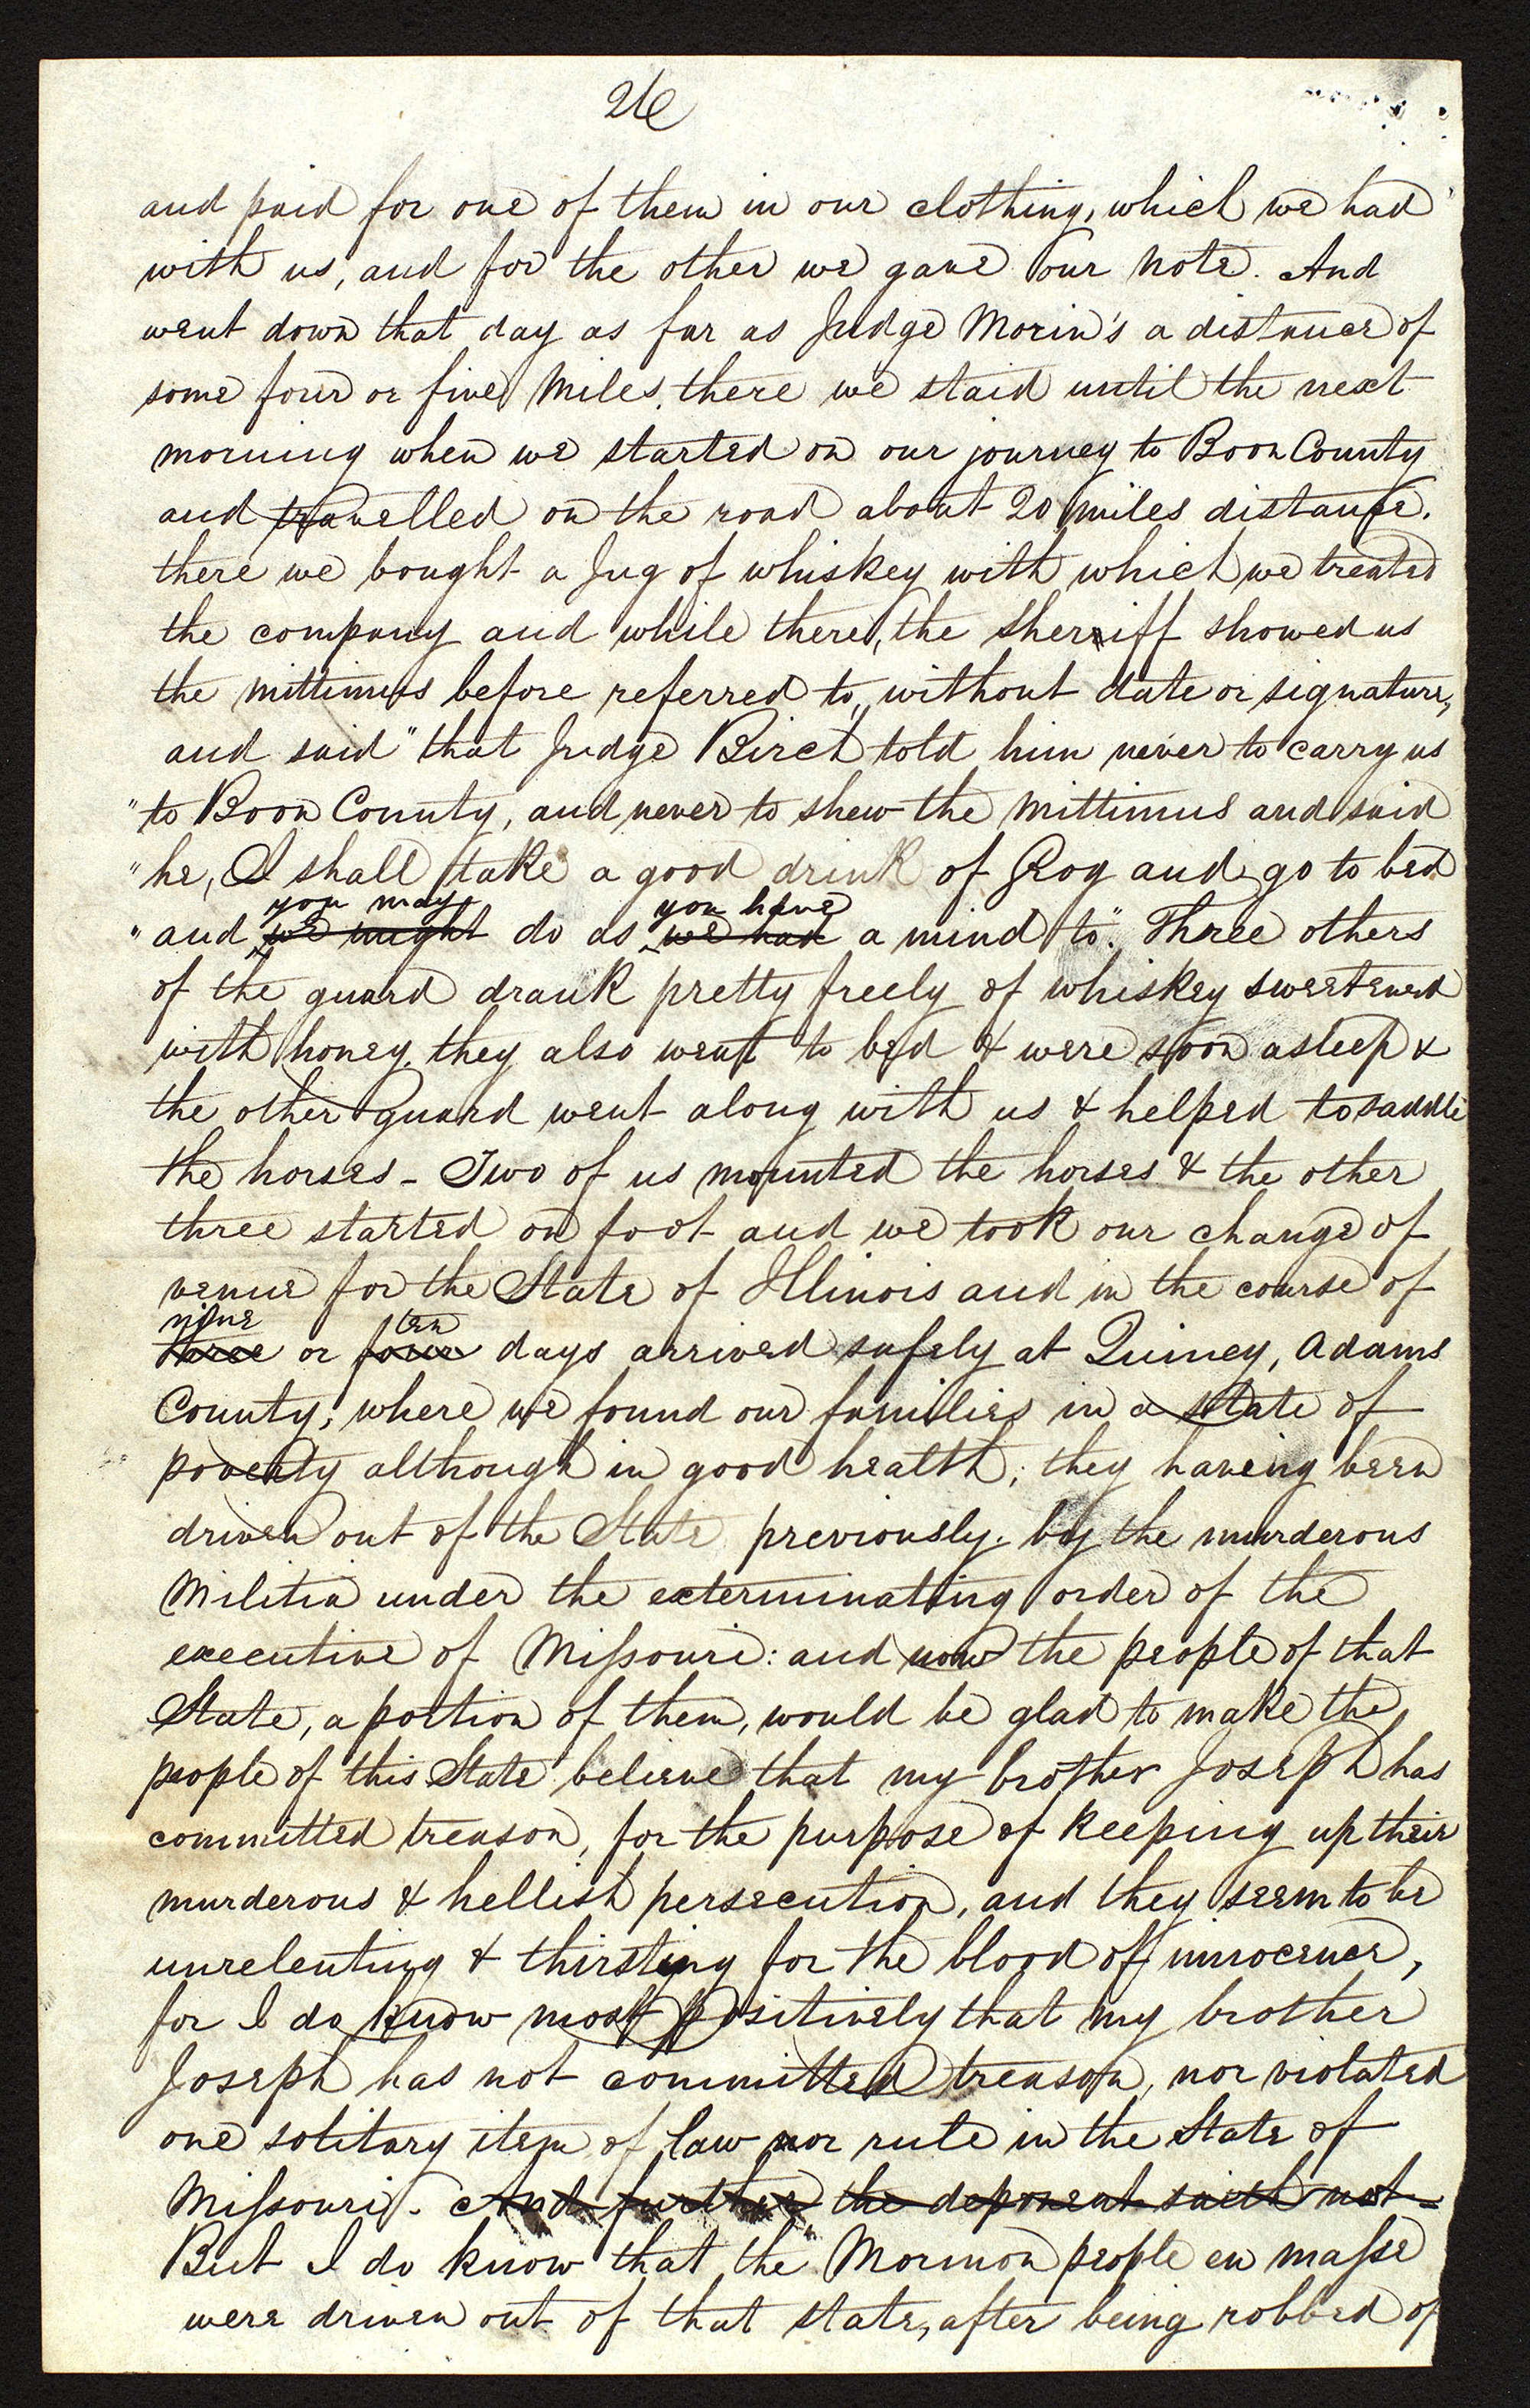 26
and paid for one of them in our clothing, which we had
with us, and for the other we gave our note. And
went down that day as far as Judge Morin's a distance of
some four or five miles, there we staid until the next
morning when we started on our journey to Boon County
and travelled on the road about 20 miles distance.
there we bought a Jug of whiskey with which we treated
the company and while there, the sheriff showed us
the mittimus before referred to, without date or signature,
and said "that Judge Birch told him never to carry us
"to Boon County, and never to shew the mittimus and said
"he, I shall take a good drink of Grog and go to bed
you may you have
"and we might do as we had a mind to." Three others
of the guard drank pretty freely of whiskey sweetened
with honey, they also went to bed & were soon asleep &
the other guard went along with us & helped to saddle
the horses - Two of us mounted the horses & the other
three started on foot and we took our change of
venue for the State of Illinois and in the course of
nine ten
three or four days arrived safely at Quincy, Adams
County, where we found our families in a state of
poverty although in good health; they having been
driven out of the State previously by the murderous
Militia under the exterminating order of the
executive of Missouri: and now the people of that
State, a portion of them, would be glad to make the
people of this State believe that my brother Joseph has
committed treason, for the purpose of keeping up their
murderous & hellish persecution, and they seem to be
unrelenting & thirsting for the blood of innocence,
for I do know most positively that my brother
Joseph has not committed treason, nor violated
one solitary item of law nor rule in the State of
Missouri. And further the deponent saith not -
But I do know that the Mormon people en masse
were driven out of that state, after being robbed of